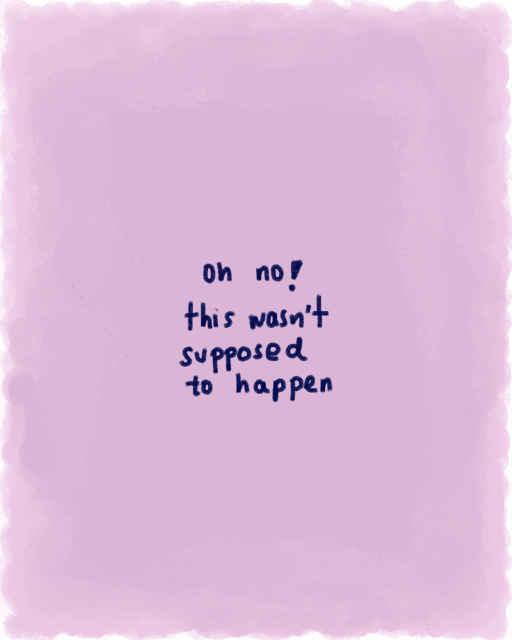 oh no!
this wasn't
supposed
to happen